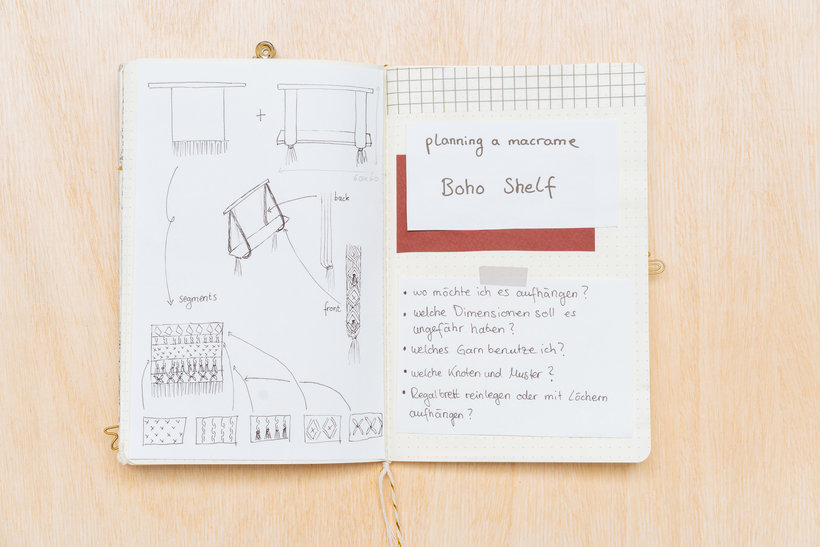 +
60x60
back
front
segments
planning a macrame
Boho Shelf
• wo möchte ich es aufhängen?
• welche Dimensionen soll es
ungefähr haben?
• welches Garn benutze ich?
• welche Knoten und Muster?
• Regalbrett reinlegen oder mit Löchern
aufhängen?